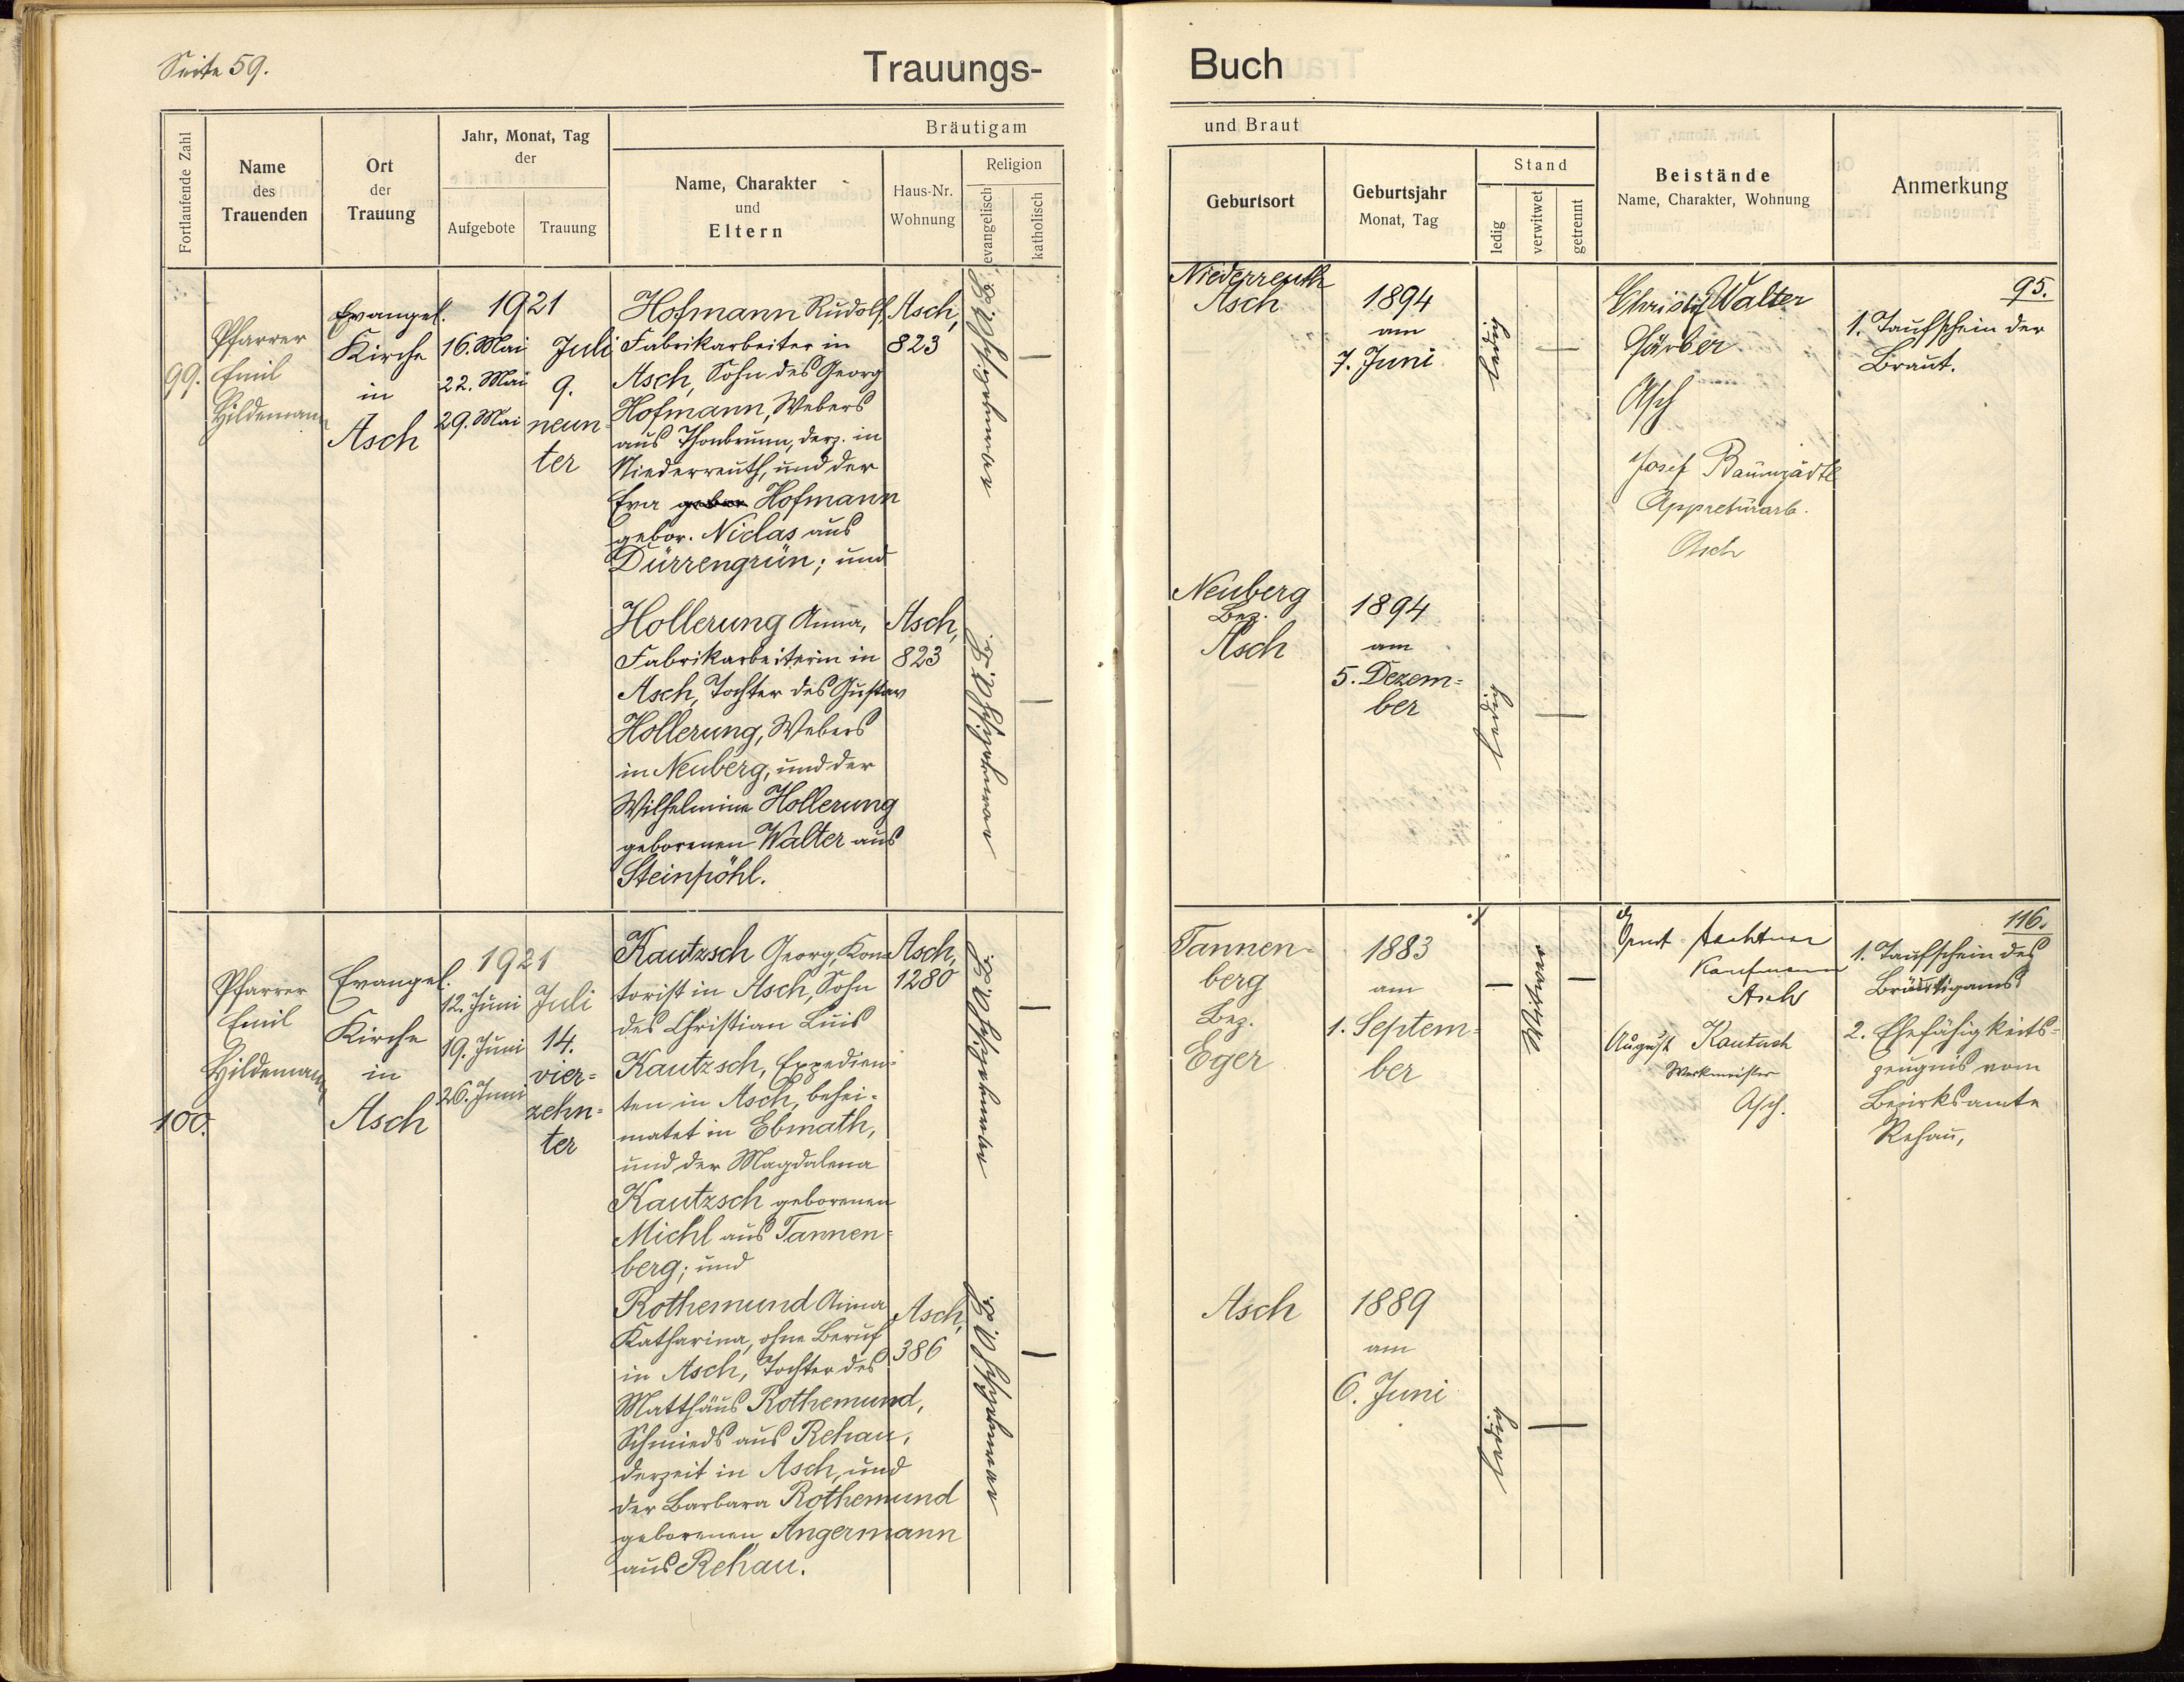 Seite 59.
Trauungs-
Buch
Fortlaufende Zahl
Name
des
Trauenden
Ort
der
Trauung
Jahr, Monat, Tag
der
Aufgebote
Trauung
Bräutigam
Name, Charakter
und
Eltern
Haus-Nr.
Wohnung
Religion
evangelisch
katholisch
und Braut
Geburtsort
Geburtsjahr
Monat, Tag
Stand
ledig
verwitwet
getrennt
Beistände
Name, Charakter, Wohnung
Anmerkung
99.
Pfarrer
Emil
Hildemann
Evangel.
Kirche
in
Asch
1921
16. Mai
22. Mai
29. Mai
Juli
9.
neun-
ter
Hofmann Rudolf,
Fabrikarbeiter in
Asch, Sohn des Georg
Hofmann, Webers
aus Thonbrunn, derz. in
Niederreuth, und der
Eva gebor Hofmann
gebor. Niclas aus
Dürrengrün; und
Asch,
823
evangelisch A.B.
—
Hollerung Anna,
Fabrikarbeiterin in
Asch, Tochter des Gustav
Hollerung, Webers
in Neuberg, und der
Wilhelmine Hollerung
geborenen Walter aus
Steinpöhl.
Asch,
823
evangelisch A.B.
—
Niederreuth
Asch
1894
am
7. Juni
ledig
—
Christof Walter
Färber
Asch
Josef Baumgärtl
Appreturarb.
Asch
95.
1. Taufschein der
Braut.
Neuberg
Bez.
Asch
1894
am
5. Dezem=
ber
ledig
—
100.
Pfarrer
Emil
Hildemann
Evangel.
Kirche
in
Asch
1921
12. Juni
19. Juni
26. Juni
Juli
14.
vier=
zehn=
ter
Kautzsch Georg, Kon
torist in Asch, Sohn
des Christian Luis
Kautzsch, Expedien=
ten in Asch, behei=
matet in Ebmath,
und der Magdalena
Kautzsch geborenen
Michl aus Tannen=
berg; und
Asch,
1280
evangelisch A.B.
—
Rothemund Anna
Katharina, ohne Beruf
in Asch, Tochter des
Matthäus Rothemund,
Schmieds aus Rehau,
derzeit in Asch, und
der Barbara Rothemund
geborenen Angermann
aus Rehau.
Asch,
386
evangelisch A.B.
—
Tannen=
berg
Bez.
Eger
1883
am
1. Septem=
ber
—
Witwer
—
Ernst
Kaufmann
Asch
August Kautzsch
Werkmeister
Asch.
116.
1. Taufschein des
Bräutigams
2. Ehefähigkeits=
zeugnis vom
Bezirksamte
Rehau,
Asch
1889
am
6. Juni
ledig
—